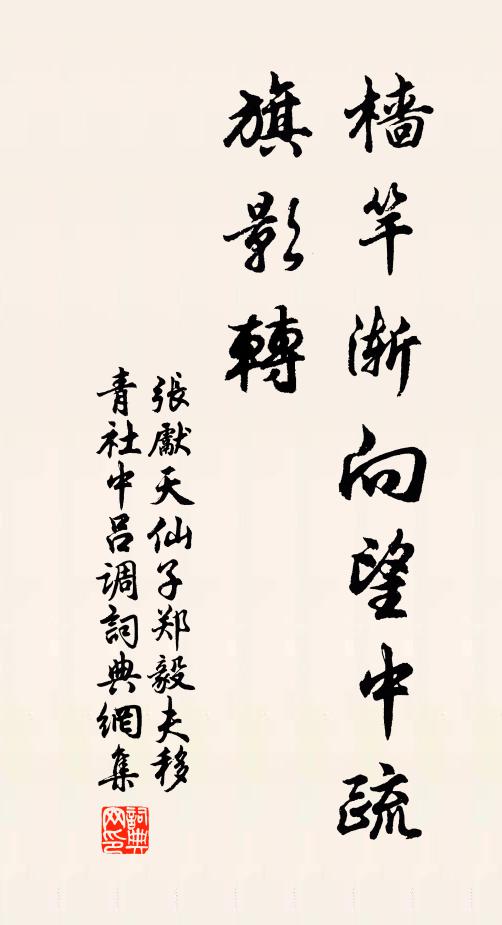 樯竿渐向望中疏
旗影轉
張獻天仙子郑毅夫移
青社中吕调詞典網集
詞典网印